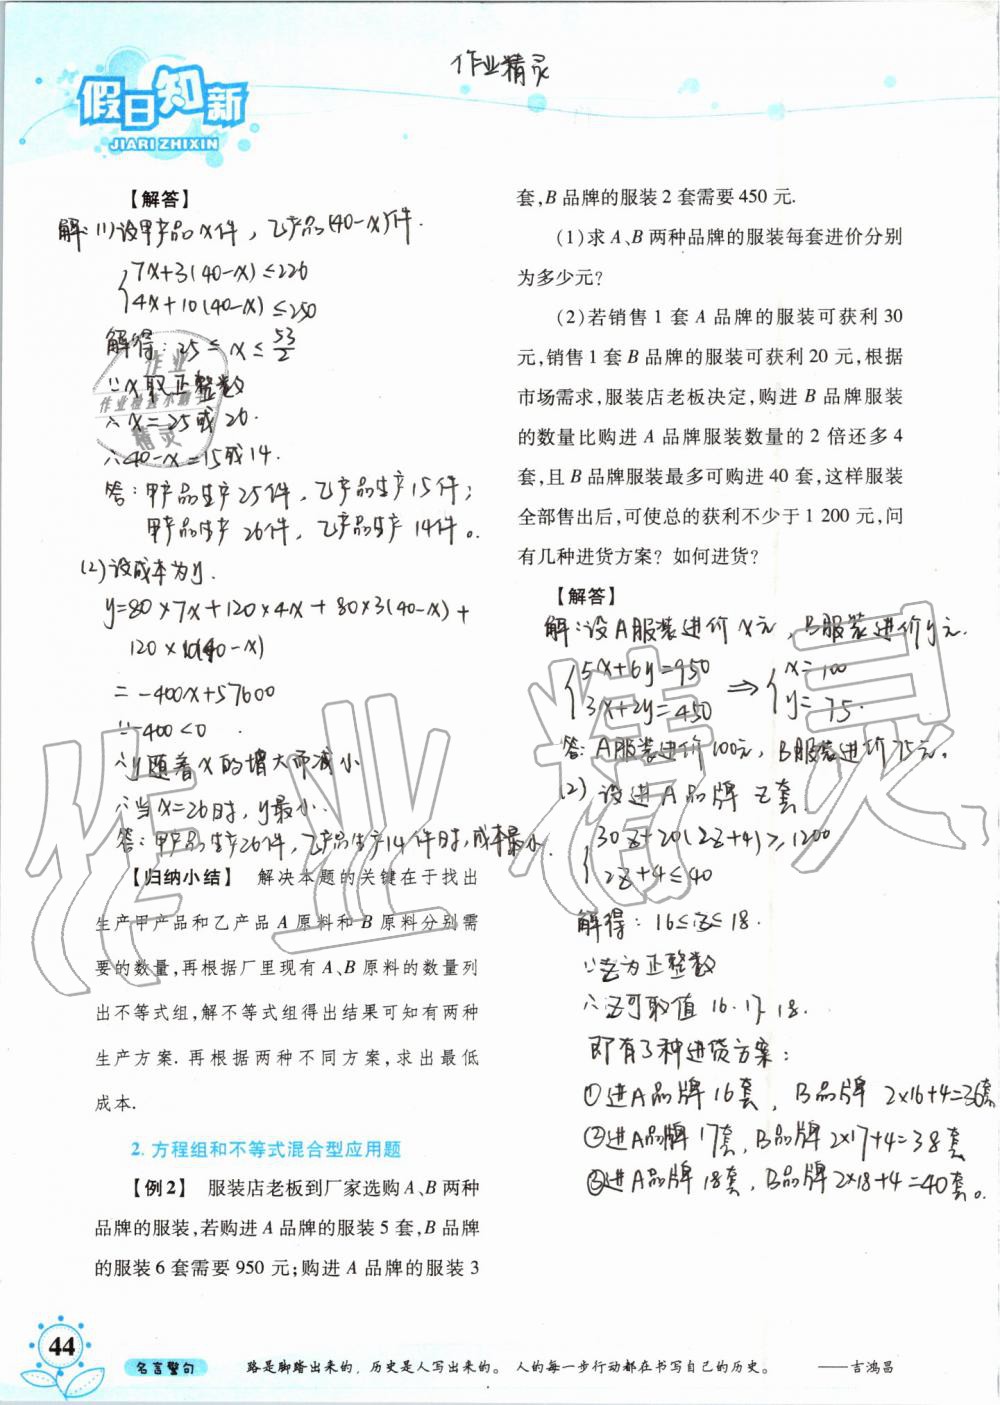 作业精灵
假日知新
JIARI ZHIXIN
【解答】
解:(1)设甲产品x件,乙产品(40-x)件.
7x+3(40-x)≤226
4x+10(40-x)≤250
解得:25≤x≤53/2
∵x取正整数
∴x=25或26.
∴40-x=15或14.
答:甲产品生产25件,乙产品生产15件;
甲产品生产26件,乙产品生产14件。
(2)设成本为y.
y=80×7x+120×4x+80×3(40-x)+
120×10(40-x)
=-400x+57600
∵-400<0
∴y随着x的增大而减小
∴当x=26时,y最小.
答:甲产品生产26件,乙产品生产14件时,成本最小.
【归纳小结】 解决本题的关键在于找出
生产甲产品和乙产品A原料和B原料分别需
要的数量,再根据厂里现有A、B原料的数量列
出不等式组,解不等式组得出结果可知有两种
生产方案.再根据两种不同方案,求出最低
成本.
2.方程组和不等式混合型应用题
【例2】 服装店老板到厂家选购A、B两种
品牌的服装,若购进A品牌的服装5套,B品牌
的服装6套需要950元;购进A品牌的服装3
套,B品牌的服装2套需要450元.
(1)求A、B两种品牌的服装每套进价分别
为多少元?
(2)若销售1套A品牌的服装可获利30
元,销售1套B品牌的服装可获利20元,根据
市场需求,服装店老板决定,购进B品牌服装
的数量比购进A品牌服装数量的2倍还多4
套,且B品牌服装最多可购进40套,这样服装
全部售出后,可使总的获利不少于1 200元,问
有几种进货方案?如何进货?
【解答】
解:设A服装进价x元,B服装进价y元.
5x+6y=950 ⇒ x=100
3x+2y=450 y=75.
答:A服装进价100元,B服装进价75元。
(2)设进A品牌z套.
30z+20(2z+4)≥1200
2z+4≤40
解得:16≤z≤18.
∵z为正整数
∴z可取值16.17.18.
即有3种进货方案:
①进A品牌16套,B品牌2×16+4=36套
②进A品牌17套,B品牌2×17+4=38套
③进A品牌18套,B品牌2×18+4=40套。
作业
作业检查小助手
精灵
作业精灵
44
名言警句
路是脚踏出来的,历史是人写出来的。人的每一步行动都在书写自己的历史。 ——吉鸿昌